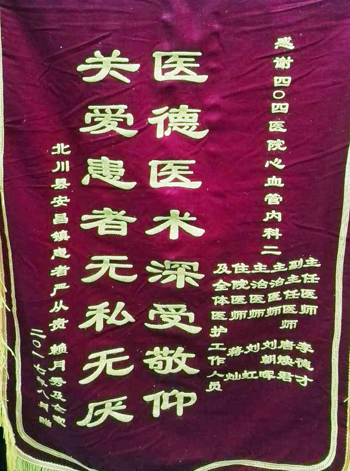 感谢四〇四医院心血管内科二
主任医师 李德才
副主任医师 唐焕君
主治医师 刘朝晖
主治医师 刘虹
住院医师 蒋灿
及全体医护工作人员
医德医术深受敬仰
关爱患者无私无厌
北川县安昌镇患者严从贵 赖月秀及全家
二〇一七年八月